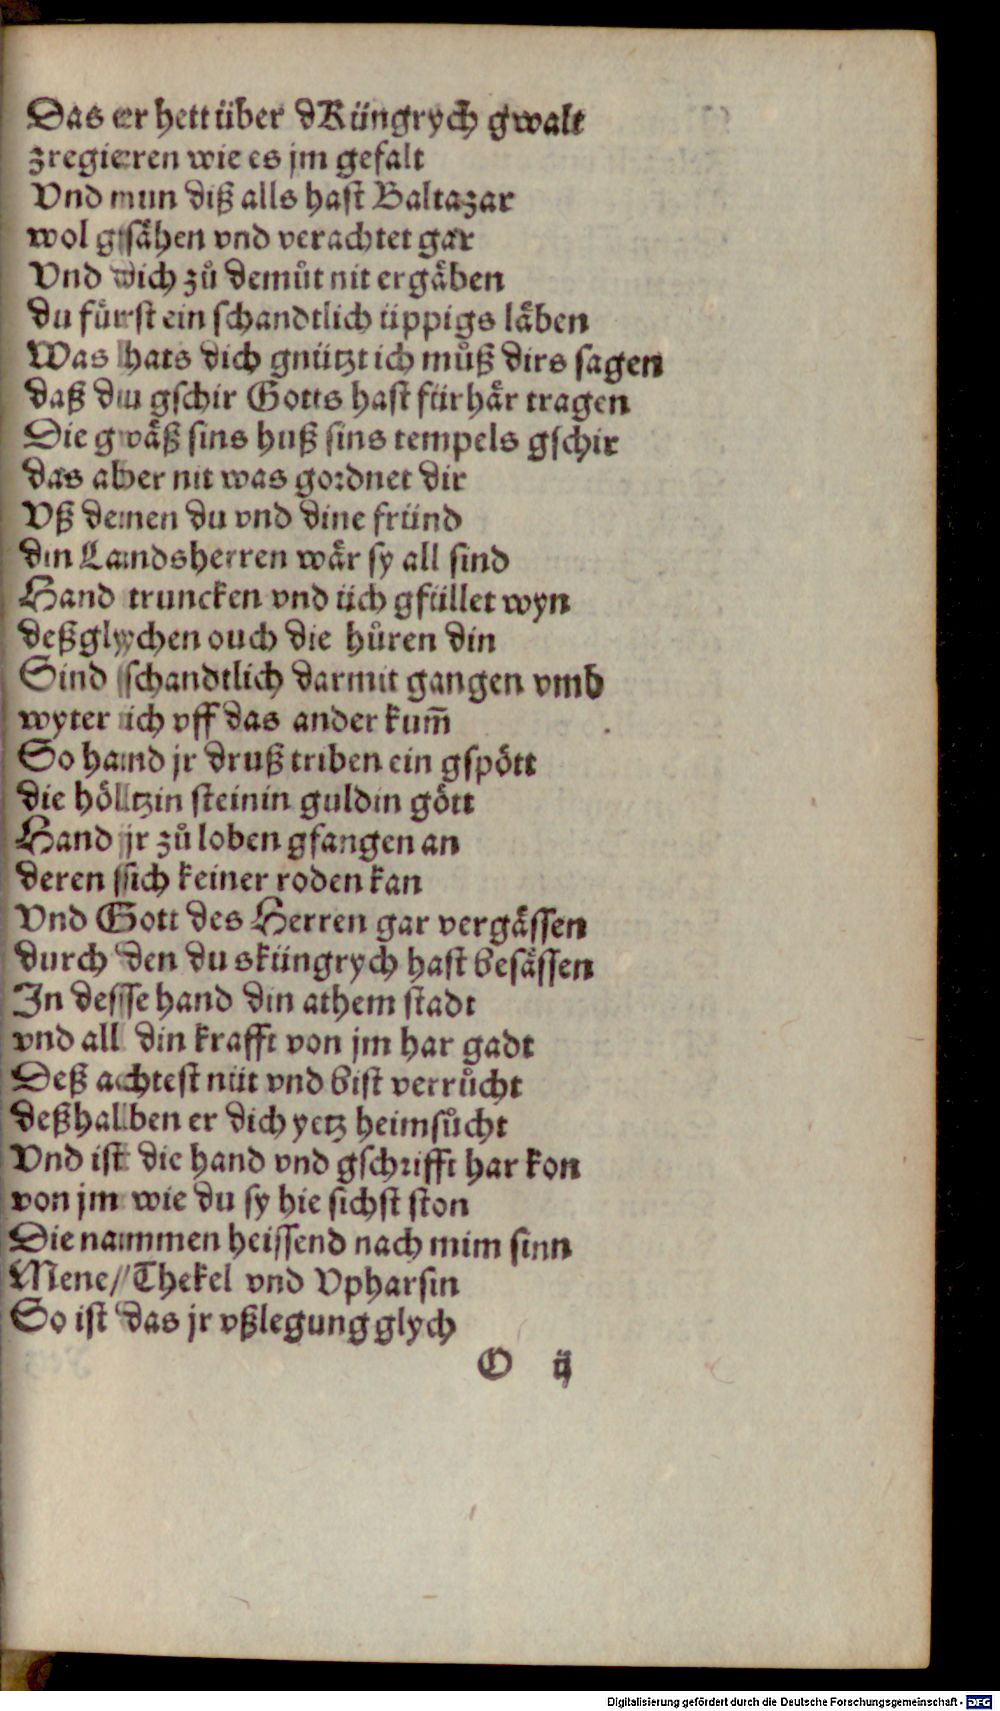 Das er hett über dKüngrych gwalt
zregieren wie es jm gefalt
Vnd nun diß alls hast Baltazar
wol gsähen vnd verachtet gar
Vnd dich zů demůt nit ergäben
du fürst ein schandtlich üppigs läben
Was hats dich gnützt ich můß dirs sagen
daß du gschir Gotts hast fürhär tragen
Die gwäß sins huß sins tempels gschir
das aber nit was gordnet dir
Vß denen du vnd dine fründ
din Landsherren wär sy all sind
Hand truncken vnd üch gfüllet wyn
deßglychen ouch die hůren din
Sind schandtlich darmit gangen vmb
wyter ich vff das ander kum̄
So hand jr druß triben ein gspött
die höltzin steinin guldin gött
Hand jr zů loben gfangen an
deren sich keiner roden kan
Vnd Gott des Herren gar vergässen
durch den du sküngrych hast besässen
In desse hand din athem stadt
vnd all din krafft von jm har gadt
Deß achtest nüt vnd bist verrůcht
deßhalben er dich yetz heimsůcht
Vnd ist die hand vnd gschrifft har kon
von jm wie du sy hie sichst ston
Die nammen heissend nach mim sinn
Mene/ Thekel vnd Vpharsin
So ist das jr vßlegung glych
O ij
Digitalisierung gefördert durch die Deutsche Forschungsgemeinschaft - DFG